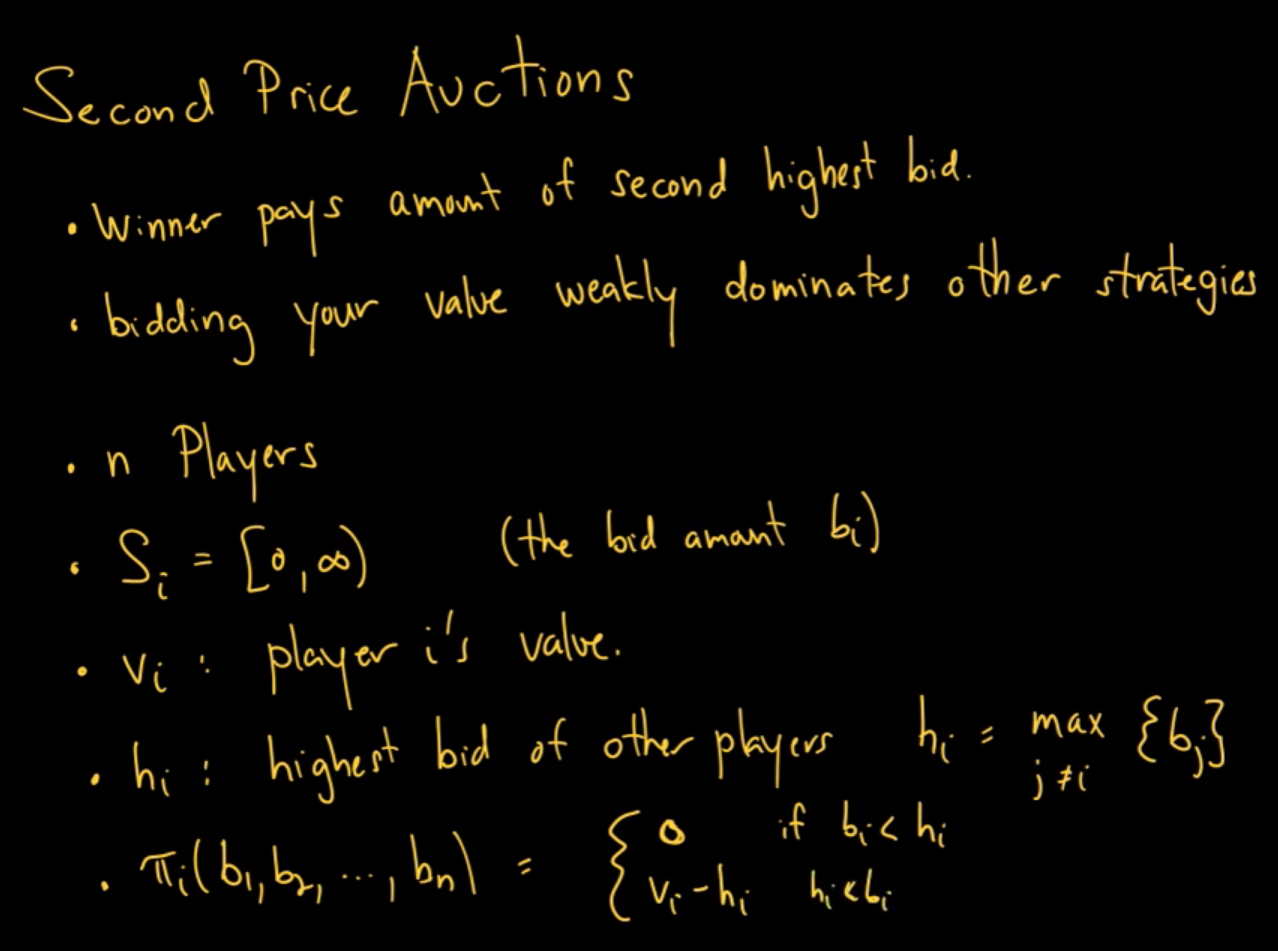 Second Price Auctions
• Winner pays amount of second highest bid.
• bidding your value weakly dominates other strategies
• n Players
• Sᵢ = [0, ∞) (the bid amount bᵢ)
• vᵢ : player i's value.
• hᵢ : highest bid of other players hᵢ = max {bⱼ}
j ≠ i
• πᵢ(b₁, b₂, ..., bₙ) = { 0 if bᵢ < hᵢ
vᵢ - hᵢ hᵢ < bᵢ